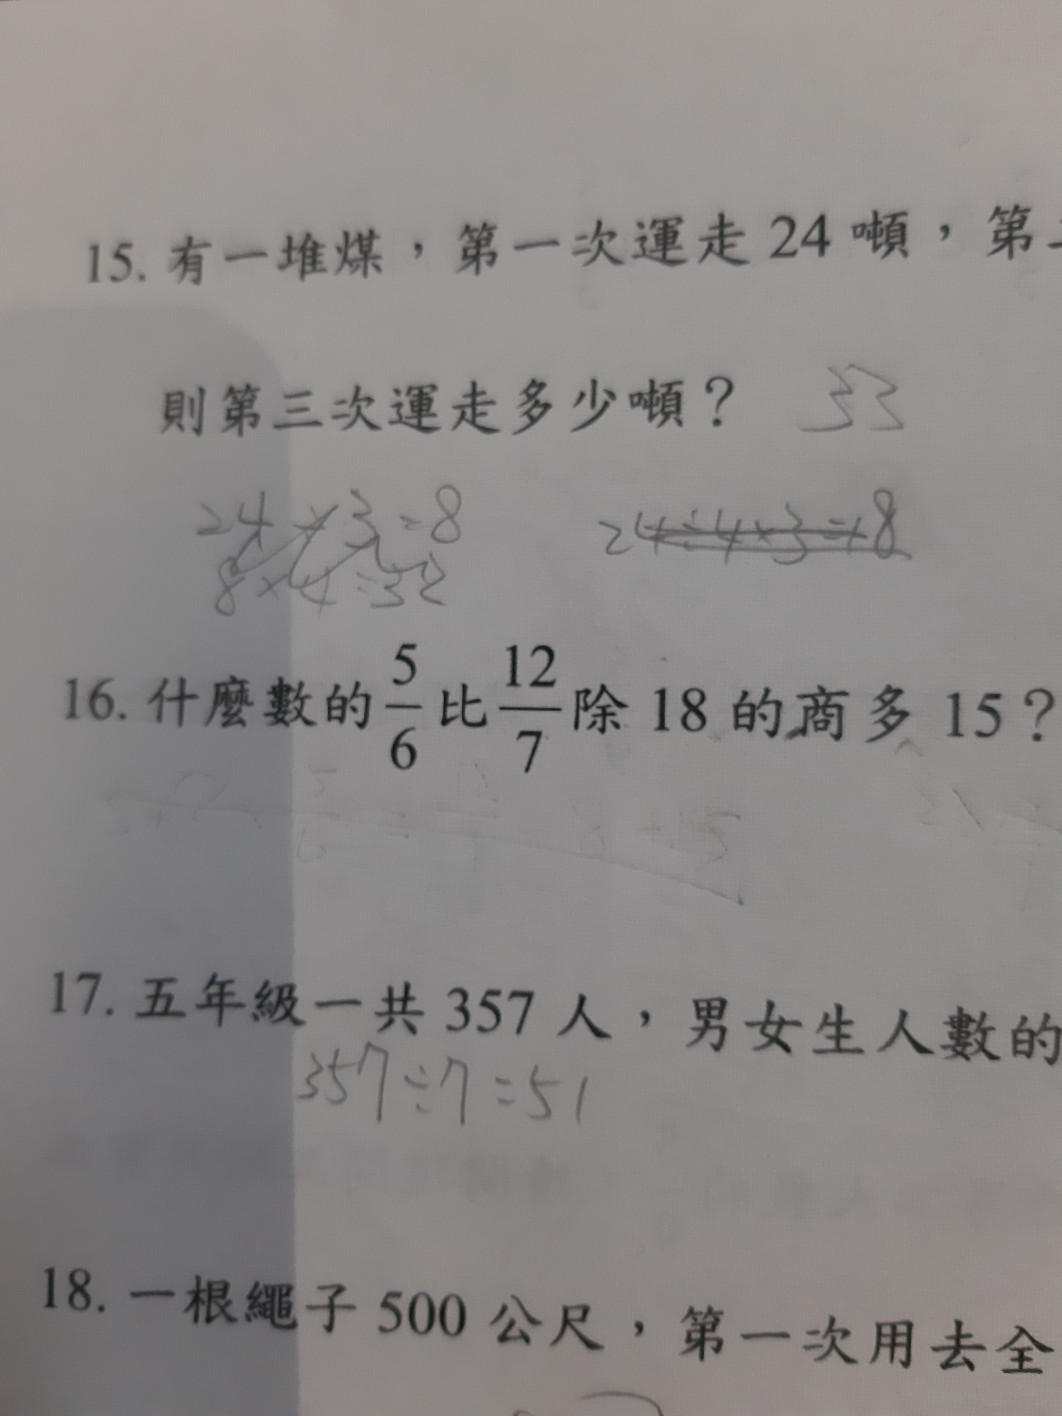 15. 有一堆煤，第一次運走 24 噸，第
則第三次運走多少噸？ 33
24 × 3 = 8
24÷4×3=18
8×4=32
16. 什麼數的 5/6 比 12/7 除 18 的商多 15？
17. 五年級一共 357 人，男女生人數的
357÷7=51
18. 一根繩子 500 公尺，第一次用去全